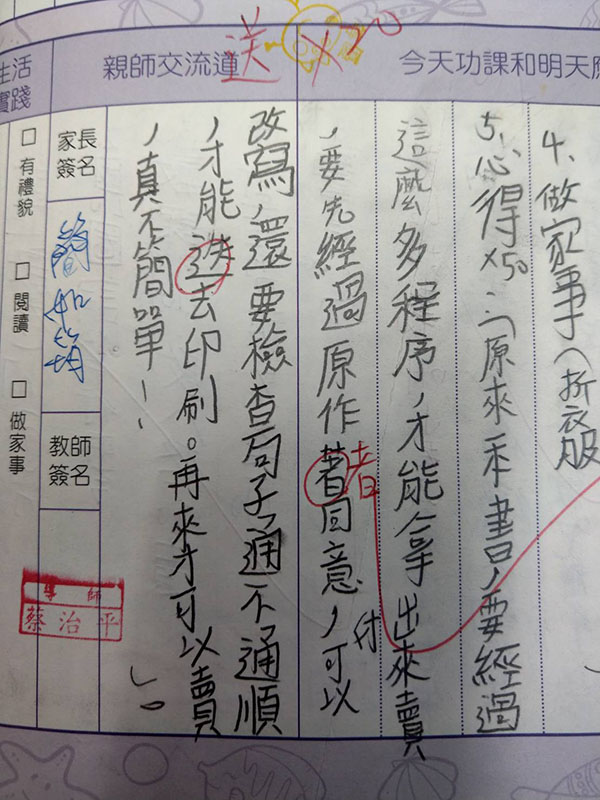 今天功課和明天
4、做家事(折衣服
5、心得x50:「原來禾書,要經過
這麼多程序,才能拿出來賣
,要先經過原作著同意,可以
者
付
親師交流道
送 x20
改寫,還要檢查句子通不通順
,才能送去印刷。再來才可以賣
,真不簡單!」。
生活
實踐
家長
簽名
簡如
教師
簽名
導師
蔡治平
□ 有禮貌 □ 閱讀 □ 做家事